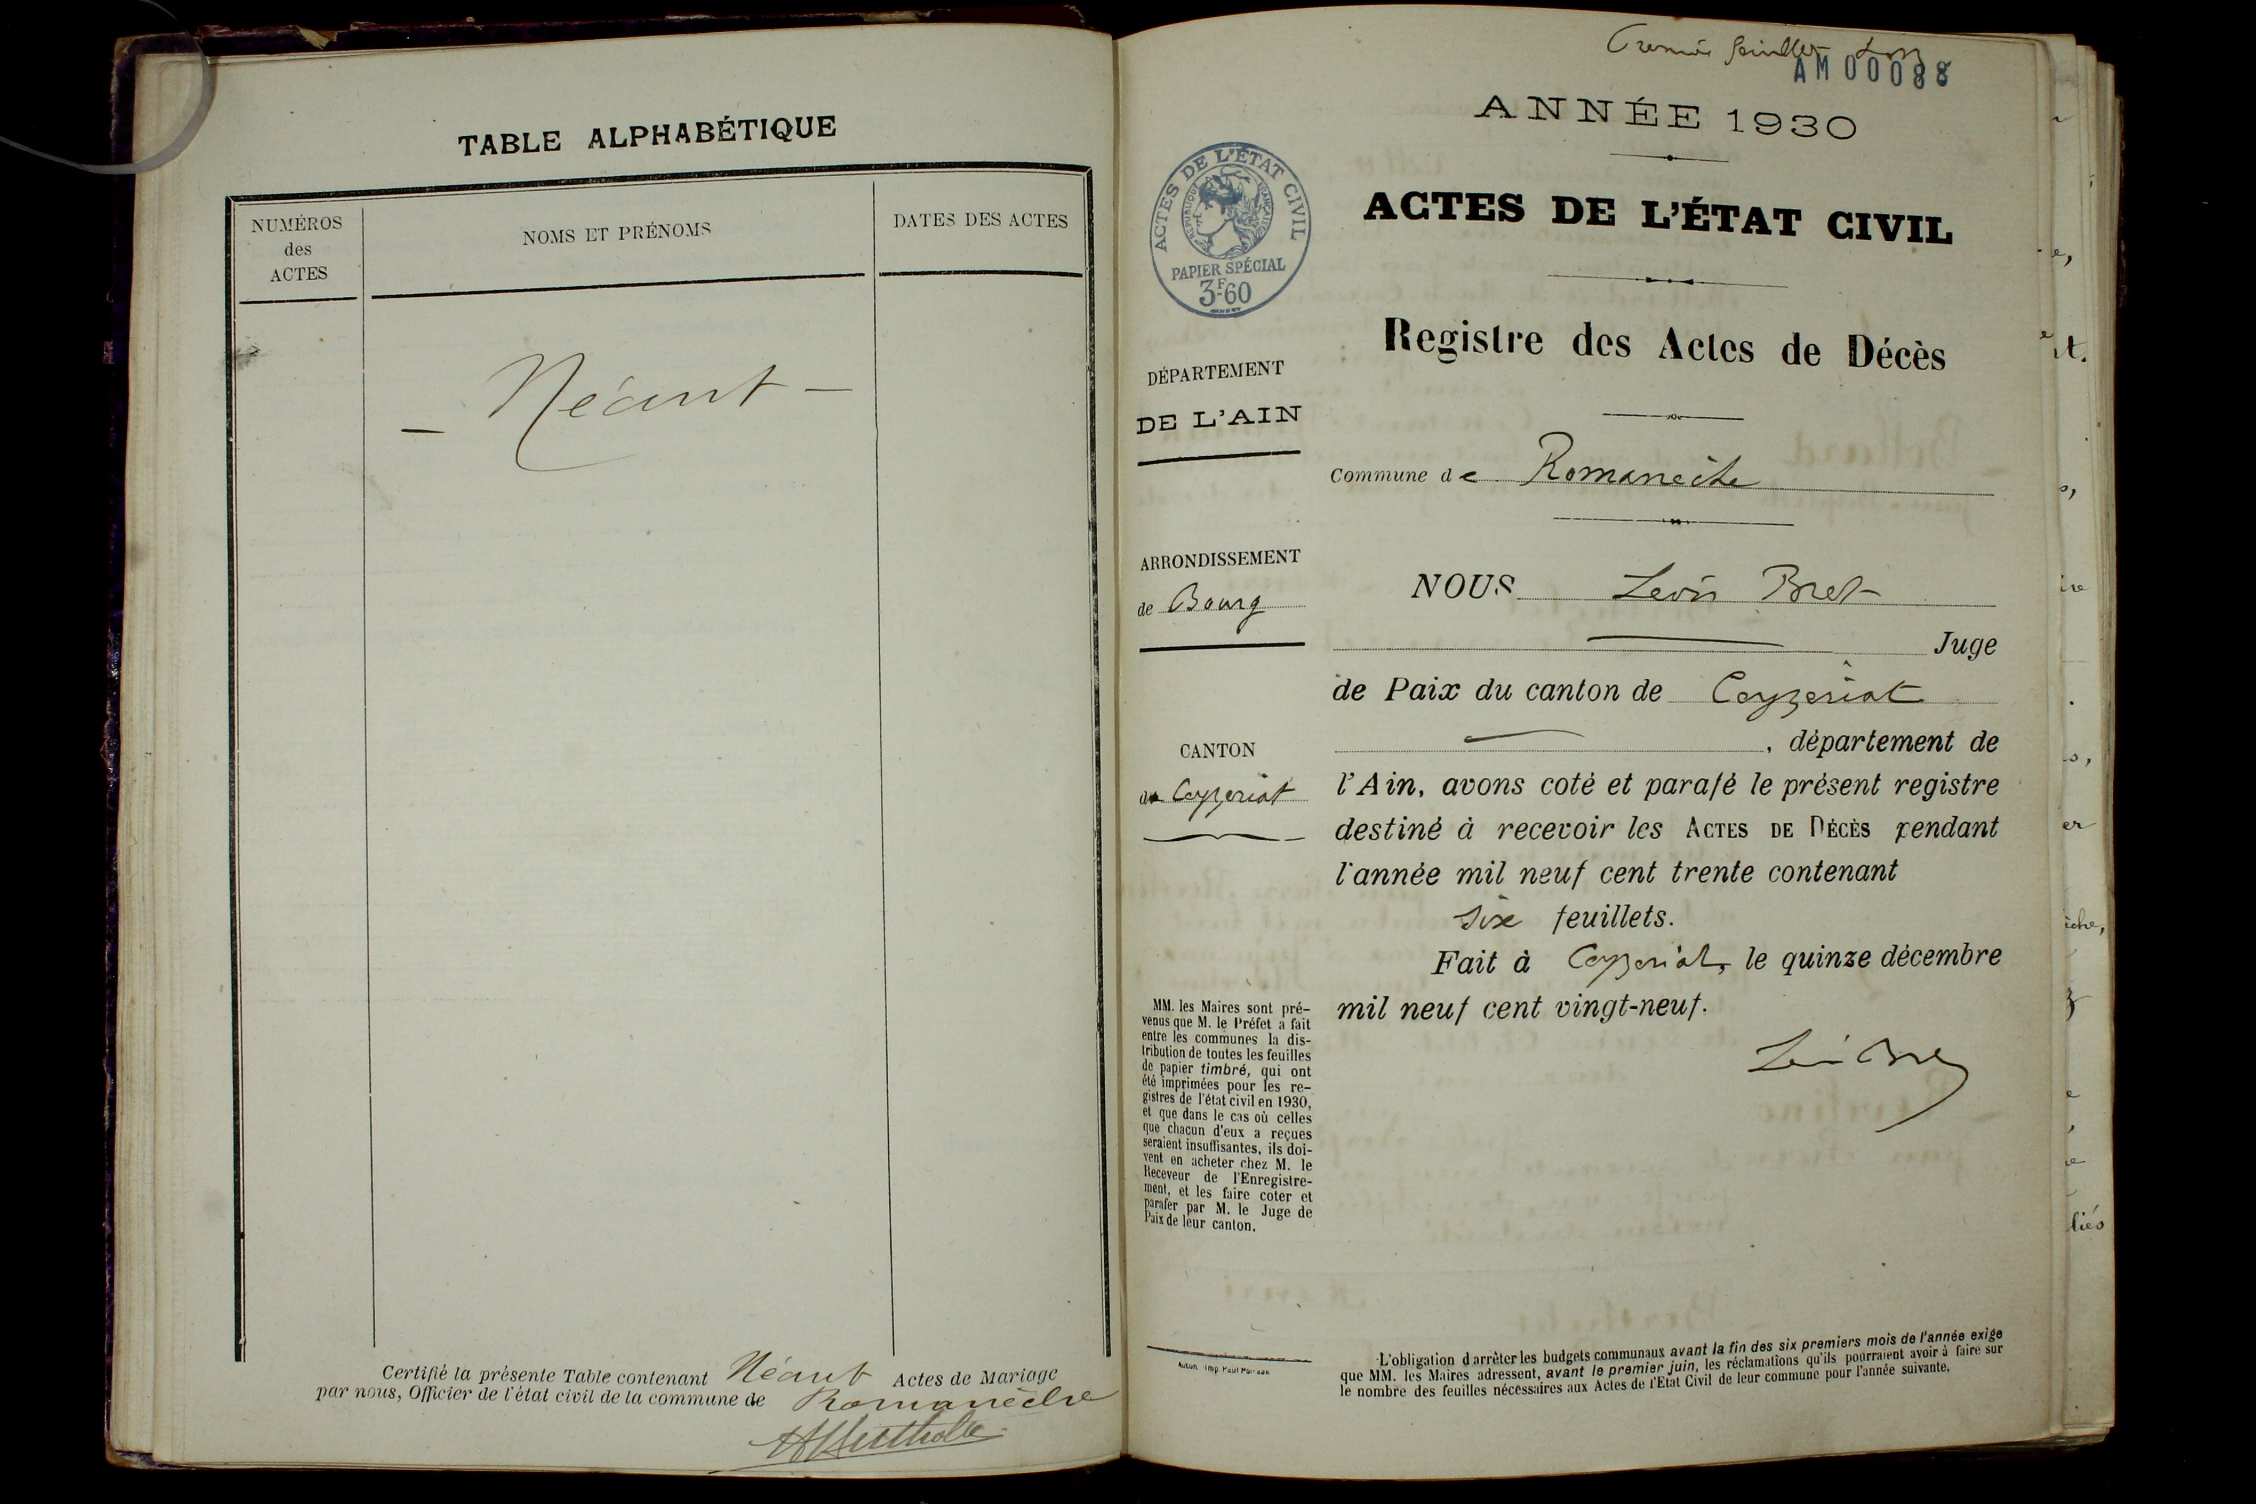 TABLE ALPHABÉTIQUE
NUMÉROS
des
ACTES
NOMS ET PRÉNOMS
DATES DES ACTES
— Néant —
Certifié la présente Table contenant Néant Actes de Mariage
par nous, Officier de l'état civil de la commune de Romanèche
AM00088
ANNÉE 1930
ACTES DE L'ÉTAT CIVIL
RÉPUBLIQUE FRANÇAISE
PAPIER SPÉCIAL
3F60
ACTES DE L'ÉTAT CIVIL
Registre des Actes de Décès
DÉPARTEMENT
DE L'AIN
Commune de Romanèche
ARRONDISSEMENT
de Bourg
NOUS Léon Bret
Juge
de Paix du canton de Ceyzeriat
CANTON
de Ceyzeriat
, département de
l'Ain, avons coté et parafé le présent registre
destiné à recevoir les ACTES DE DÉCÈS pendant
l'année mil neuf cent trente contenant
six feuillets.
Fait à Ceyzeriat, le quinze décembre
mil neuf cent vingt-neuf.
MM. les Maires sont pré-
venus que M. le Préfet a fait
entre les communes la dis-
tribution de toutes les feuilles
de papier timbré, qui ont
été imprimées pour les re-
gistres de l'état civil en 1930,
et que dans le cas où celles
que chacun d'eux a reçues
seraient insuffisantes, ils doi-
vent en acheter chez M. le
Receveur de l'Enregistre-
ment, et les faire coter et
parafer par M. le Juge de
Paix de leur canton.
L'obligation d'arrêter les budgets communaux avant la fin des six premiers mois de l'année exige
que MM. les Maires adressent, avant le premier juin, les réclamations qu'ils pourraient avoir à faire sur
le nombre des feuilles nécessaires aux Actes de l'Etat Civil de leur commune pour l'année suivante.